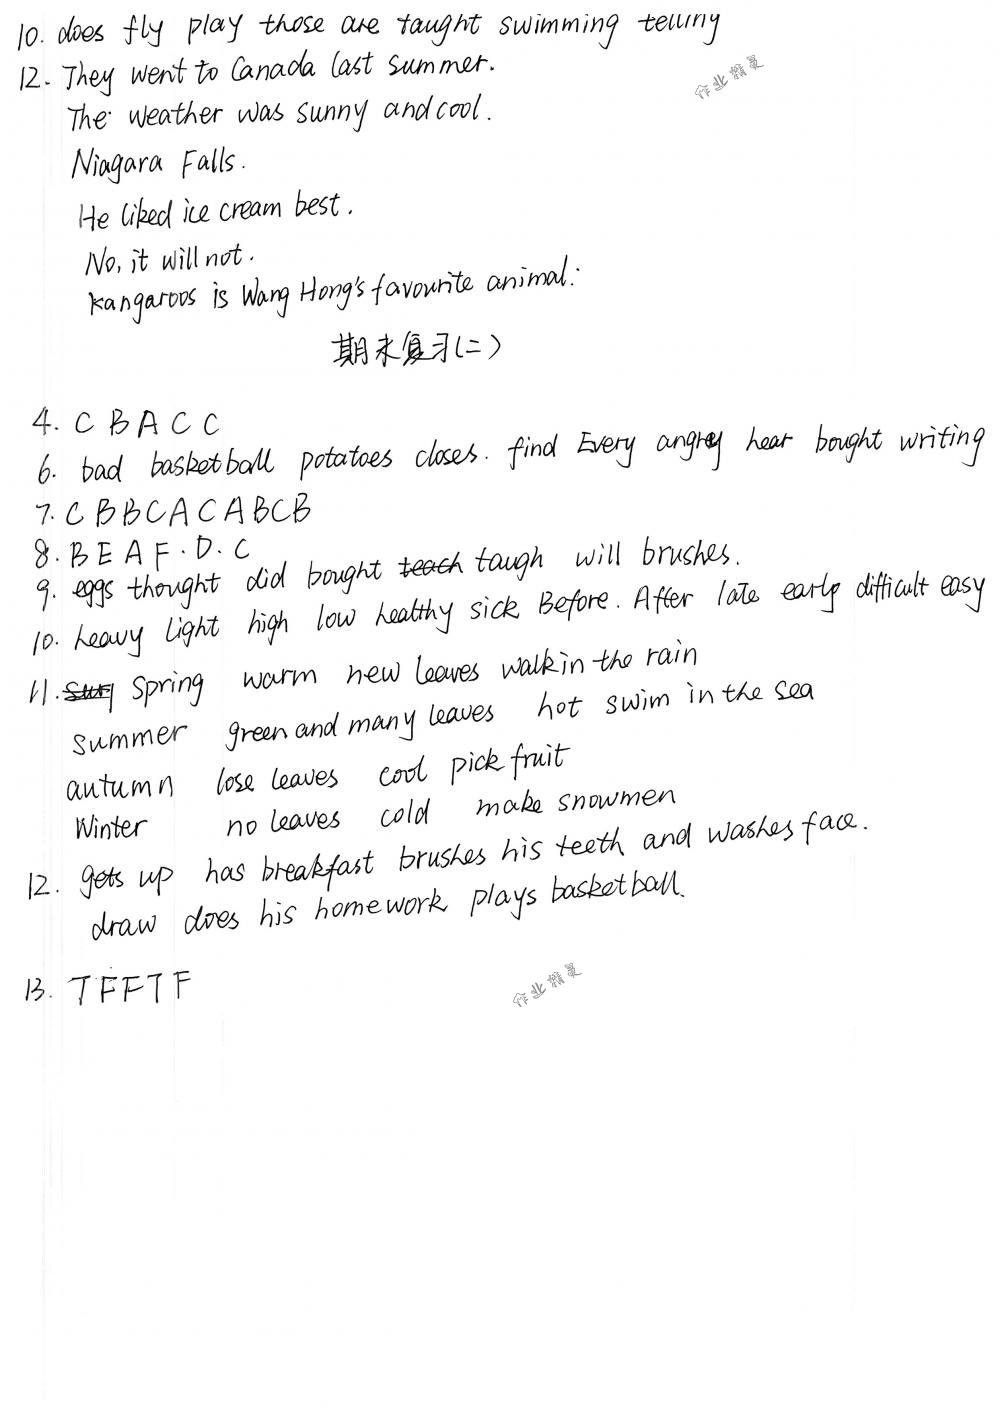 10. does fly play those are taught swimming telling
12. They went to Canada last summer.
作业精灵
The weather was sunny and cool.
Niagara Falls.
He liked ice cream best.
No, it will not.
Kangaroos is Wang Hong's favourite animal.
期末复习(二)
4. C B A C C
6. bad basketball potatoes closes. find Every angrey hear bought writing
7. C B B C A C A B C B
8. B E A F. D. C
9. eggs thought did bought teach taugh will brushes.
10. heavy light high low healthy sick Before. After late early difficult easy
11. spring warm new leaves walk in the rain
summer green and many leaves hot swim in the sea
autumn lose leaves cool pick fruit
Winter no leaves cold make snowmen
12. gets up has breakfast brushes his teeth and washes face.
draw does his homework plays basketball.
13. T F F T F
作业精灵